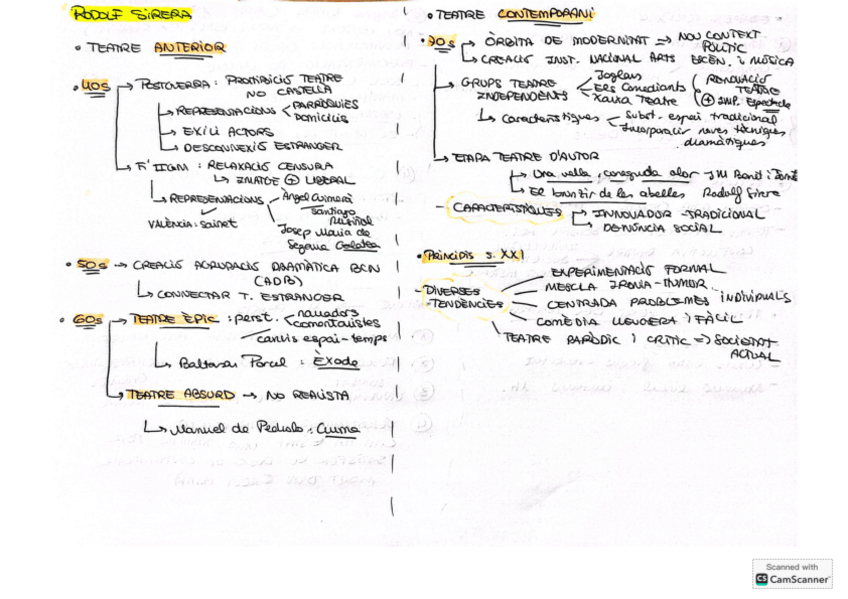 RODOLF SIRERA
• TEATRE ANTERIOR
• 40s → POSTGUERRA: PROHIBICIÓ TEATRE
NO CASTELLÀ
→ REPRESENTACIONS < PARRÒQUIES
DOMICILIS
→ EXILI ACTORS
→ DESCONNEXIÓ ESTRANGER
→ FI IIGM: RELAXACIÓ CENSURA
↳ IMATGE ⊕ LIBERAL
→ REPRESENTACIONS
Àngel Guimerà
Santiago
Rusiñol
Josep Maria de
Segarra Galatea
VALÈNCIA: sainet
• 50s → CREACIÓ AGRUPACIÓ DRAMÀTICA BCN
(ADB)
↳ CONNECTAR T. ESTRANGER
• 60s → TEATRE ÈPIC: perst. narradors
comentaristes
canvis espai-temps
↳ Baltasar Porcel: Èxode
→ TEATRE ABSURD → NO REALISTA
↳ Manuel de Pedrolo: Cruma
• TEATRE CONTEMPORANI
• 70s → ÒRBITA DE MODERNITAT → NOU CONTEXT
POLÍTIC
→ CREACIÓ INST. NACIONAL ARTS ESCÈN. i MÚSICA
→ GRUPS TEATRE
INDEPENDENTS
Joglars
Els Comediants
Xarxa Teatre
RENOVACIÓ
TEATRE
⊕ IMP. Espectacle
↳ Característiques < Subst. espai tradicional
Incorporació noves tècniques
dramàtiques
→ ETAPA TEATRE D'AUTOR
↳ Una vella, coneguda olor J M Benet i Jornet
↳ El brunzir de les abelles Rodolf Sirera
- CARACTERÍSTIQUES → INNOVADOR - TRADICIONAL
→ DENÚNCIA SOCIAL
• PRINCIPIS S. XXI
- DIVERSES
TENDÈNCIES
EXPERIMENTACIÓ FORMAL
MESCLA IRONIA-HUMOR
CENTRADA PROBLEMES INDIVIDUALS
COMÈDIA LLEUGERA i FÀCIL
TEATRE PARÒDIC i CRÍTIC ⇒ SOCIETAT
ACTUAL
Scanned with
CS CamScanner